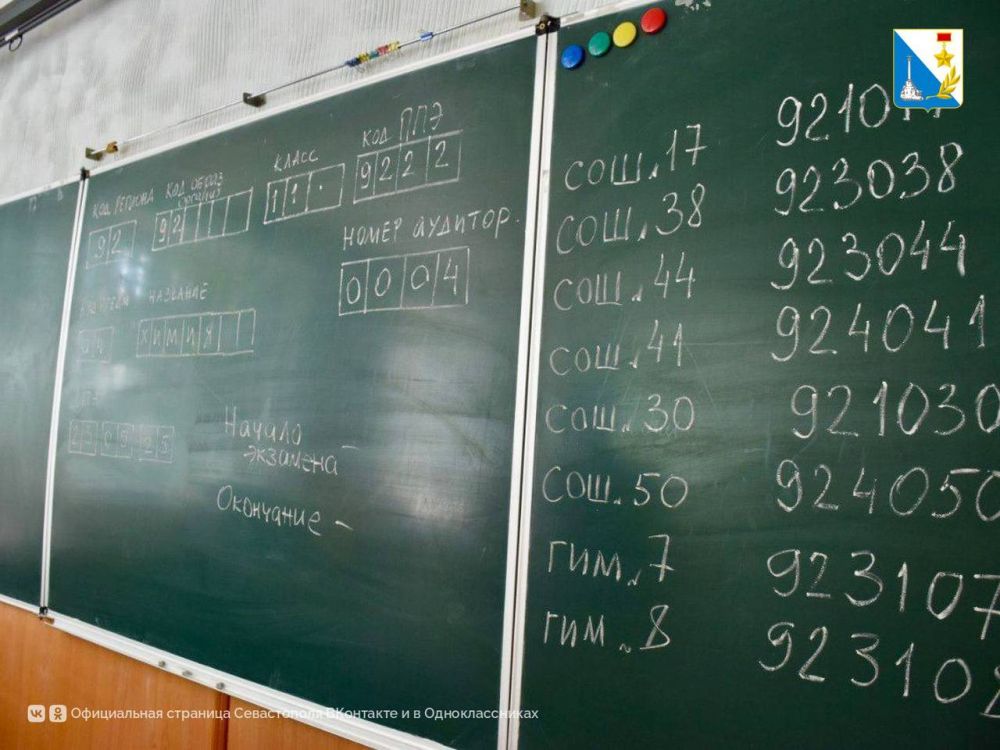 КОД РЕГИОНА КОД ОБРАЗ КЛАСС КОД ППЭ
92 92 11. 9222
НОМЕР АУДИТОР.
0004
НАЗВАНИЕ
04 ХИМИЯ
23 05 25
Начало –
экзамена
Окончание –
СОШ. 17 9210
СОШ. 38 923038
СОШ. 44 923044
СОШ. 41 924041
СОШ. 30 921030
СОШ. 50 924050
ГИМ. 7 923107
ГИМ. 8 923108
Официальная страница Севастополя ВКонтакте и в Одноклассниках